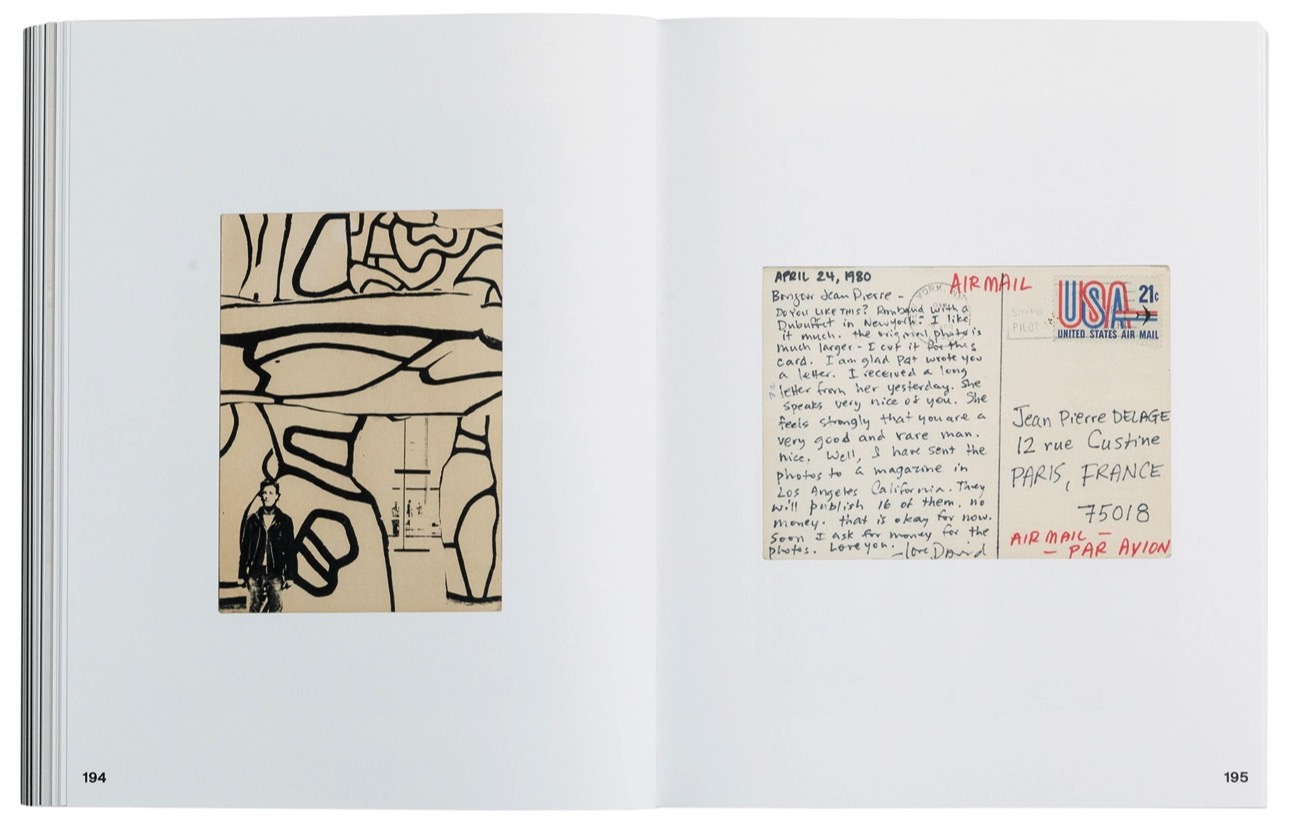 194
APRIL 24, 1980
Bonjour Jean Pierre -
Do you LIKE THIS? Rimbaud with a
Dubuffet in New York. I like
it much. the original photo is
much larger - I cut it for this
card. I am glad Pat wrote you
a letter. I received a long
letter from her yesterday. She
speaks very nice of you. She
feels strongly that you are a
very good and rare man.
nice. Well, I have sent the
photos to a magazine in
Los Angeles California. They
will publish 16 of them. no
money. that is okay for now.
Soon I ask for money for the
photos. Love you. - Love David
AIRMAIL
YORK
PILOT
USA 21c
UNITED STATES AIR MAIL
Jean Pierre DELAGE
12 rue Custine
PARIS, FRANCE
75018
AIR MAIL -
- PAR AVION
195